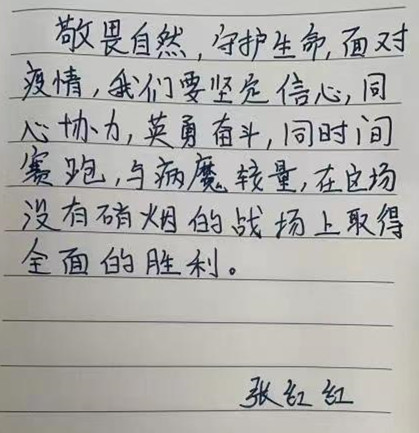 敬畏自然,守护生命,面对
疫情,我们要坚定信心,同
心协力,英勇奋斗,同时间
赛跑,与病魔较量,在这场
没有硝烟的战场上取得
全面的胜利。
张红红